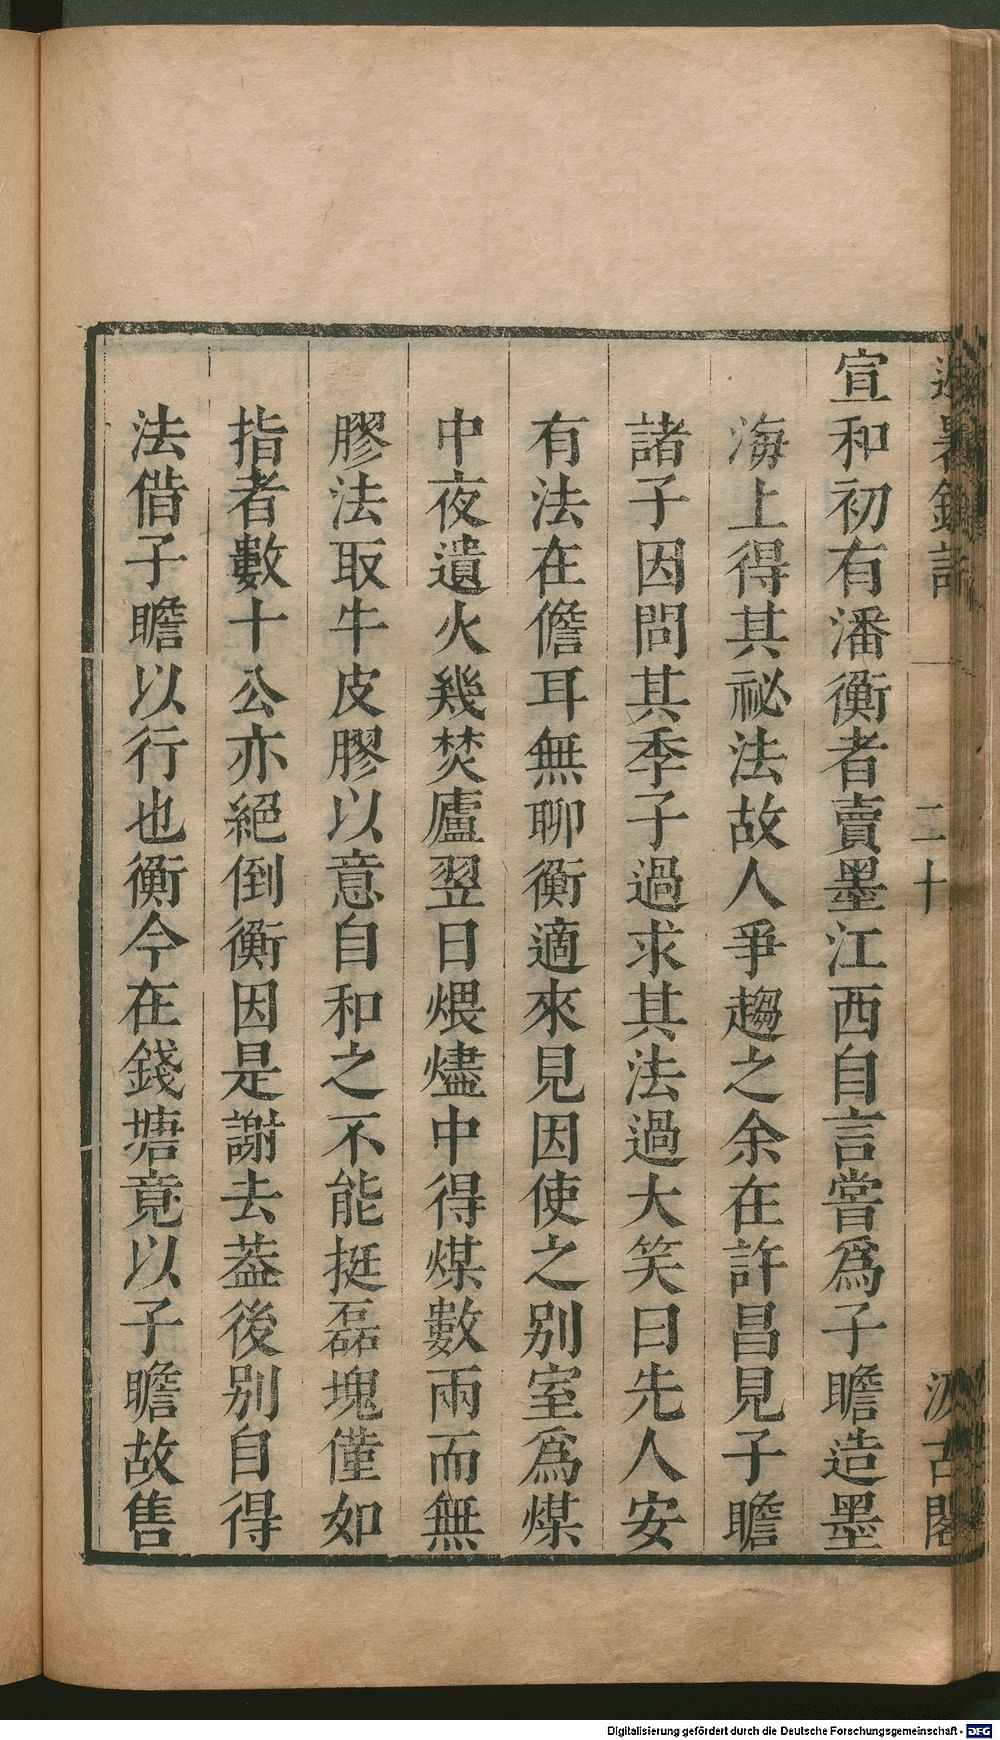 避暑錄話
二十
汲古閣
宣和初有潘衡者賣墨江西自言嘗爲子瞻造墨
海上得其祕法故人爭趨之余在許昌見子瞻
諸子因問其季子過求其法過大笑曰先人安
有法在儋耳無聊衡適來見因使之别室爲煤
中夜遺火幾焚廬翌日煨燼中得煤數兩而無
膠法取牛皮膠以意自和之不能挺磊塊僅如
指者數十公亦絕倒衡因是謝去葢後别自得
法借子瞻以行也衡今在錢塘竟以子瞻故售
Digitalisierung gefördert durch die Deutsche Forschungsgemeinschaft - DFG